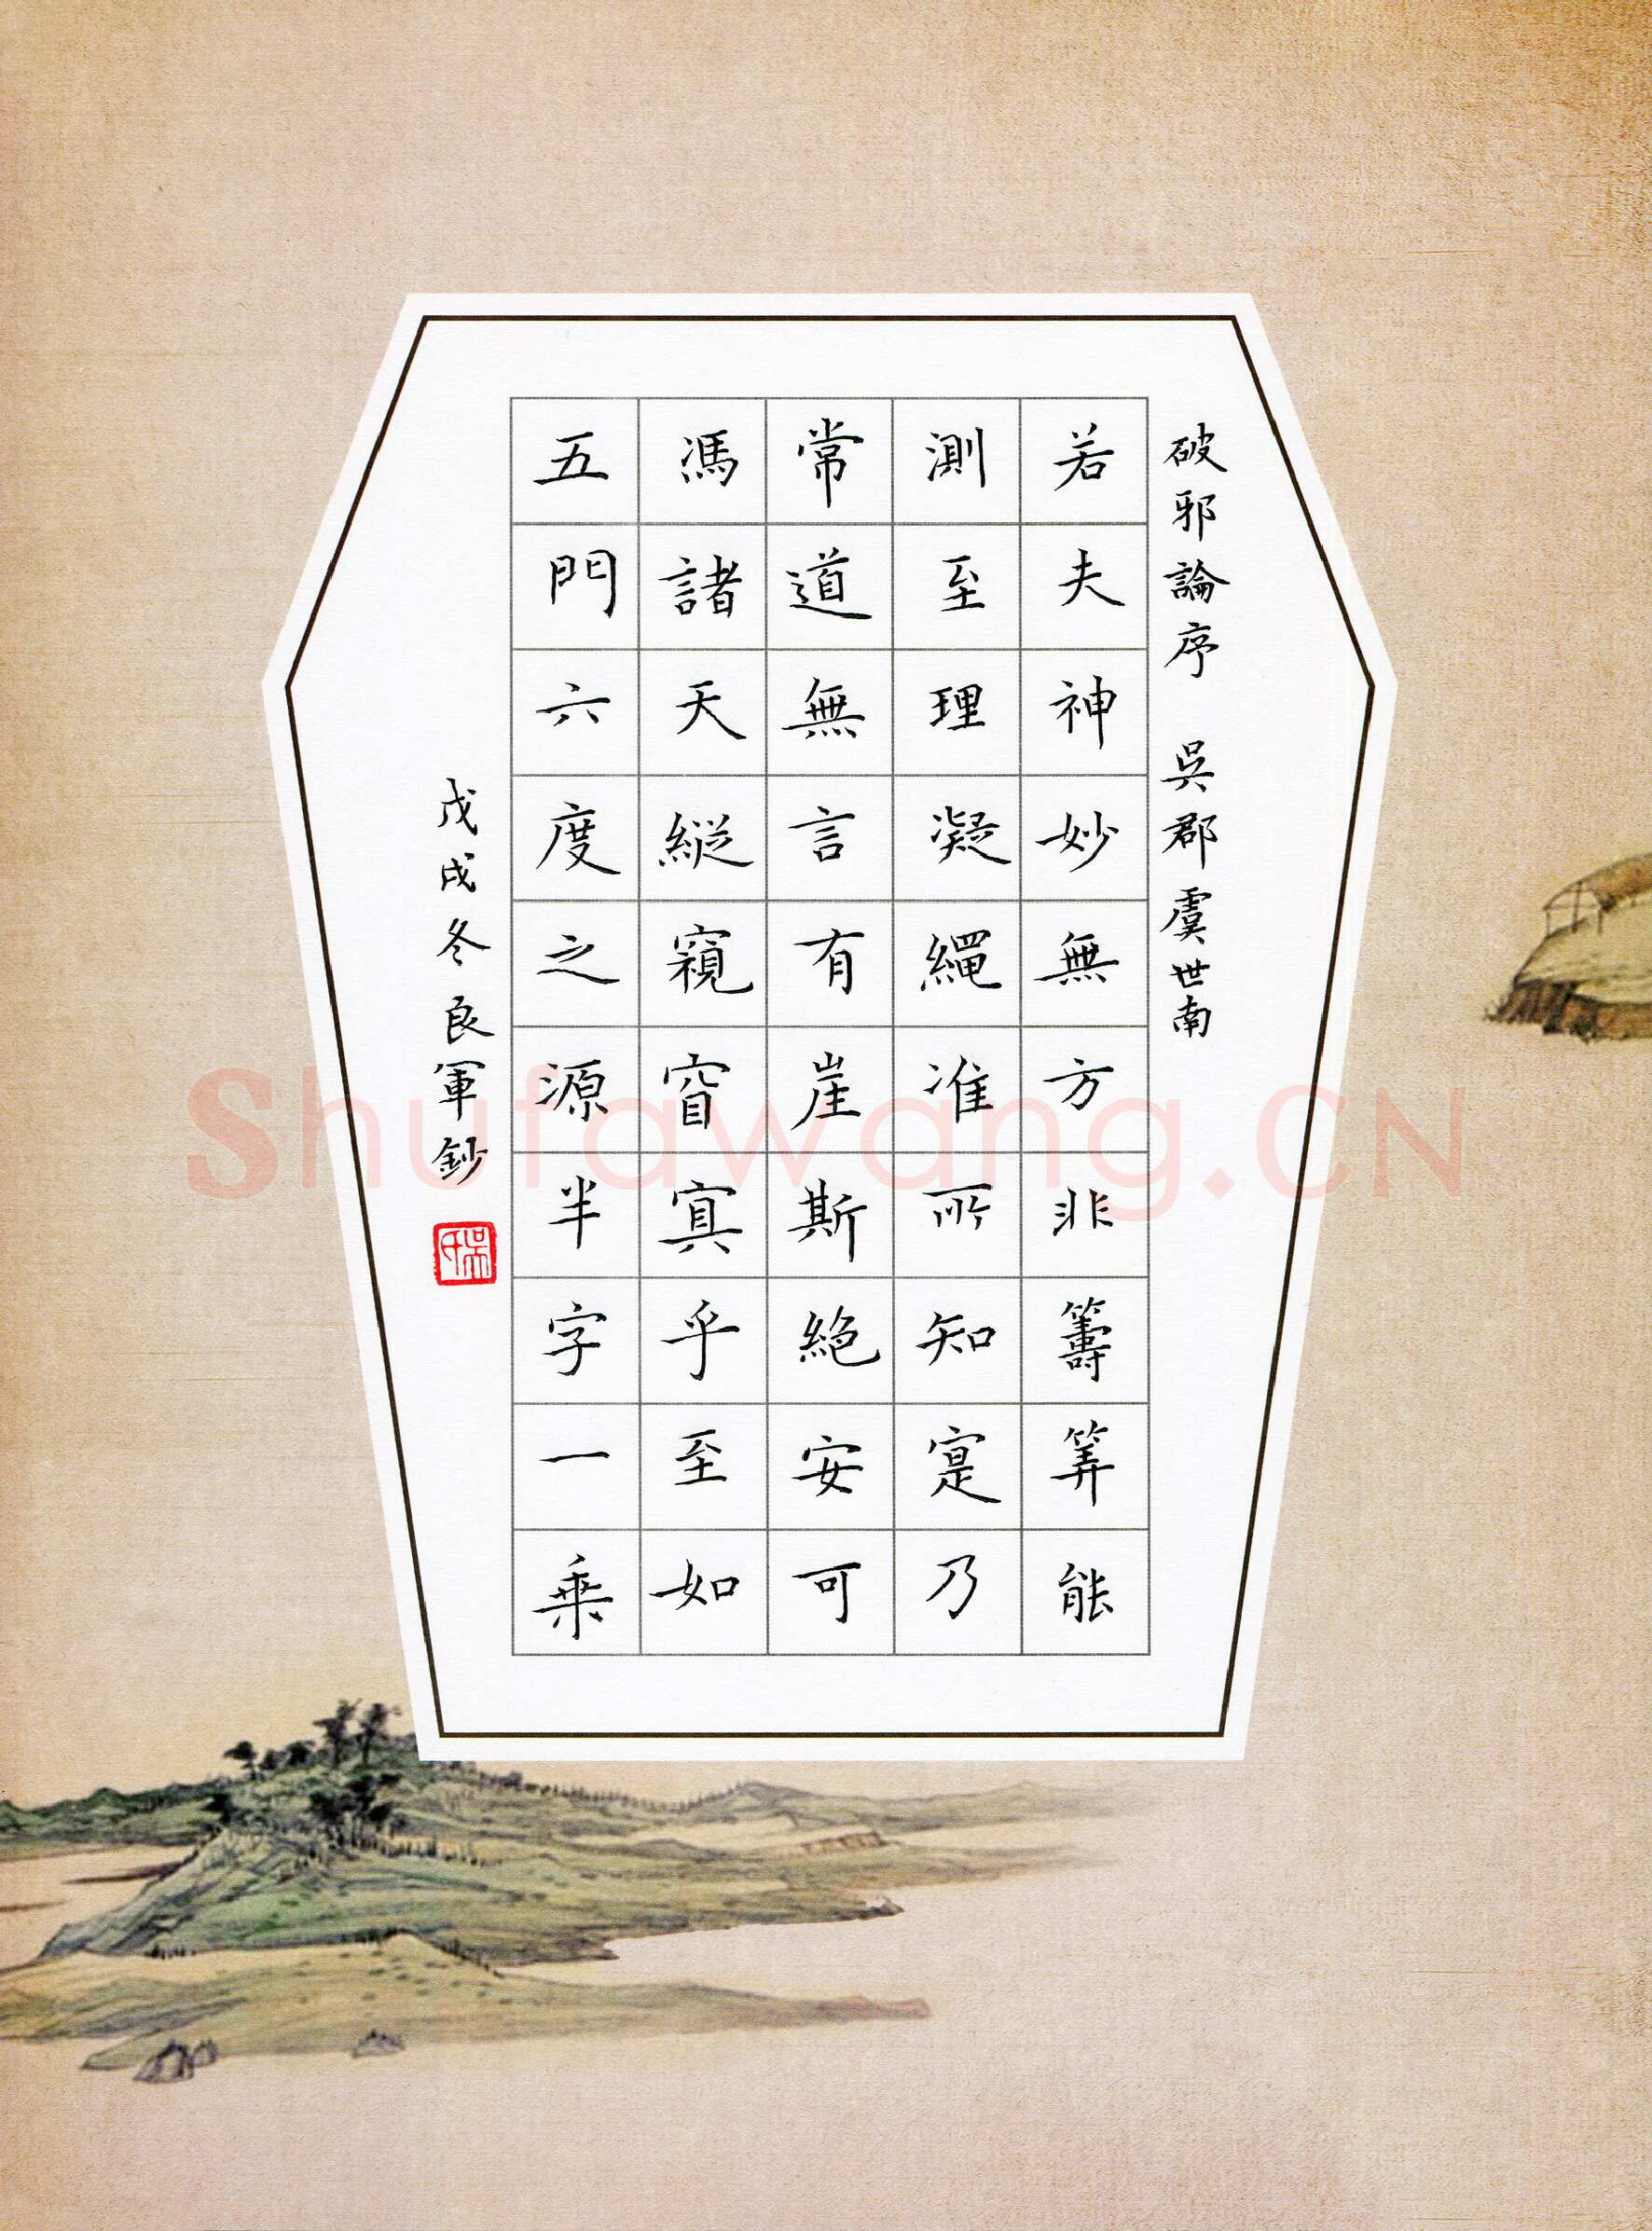 破邪論序 吳郡虞世南
若夫神妙無方非籌筭能
測至理凝繩准所知寔乃
常道無言有崖斯絶安可
馮諸天縱窺窅寘乎至如
五門六度之源半字一乘
戊戌冬良軍鈔
吳氏
Shufawang.CN